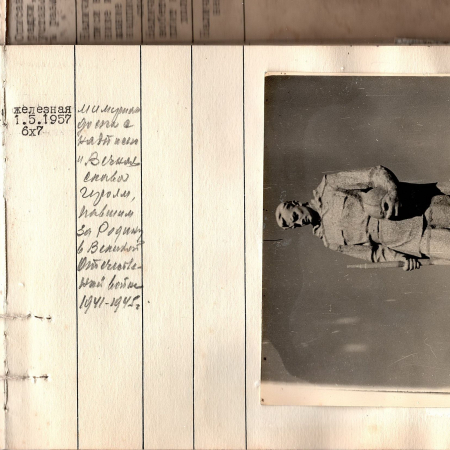 железная
1.5.1957
6х7
мемориал
доска с
надписью
"Вечная
слава
героям,
павшим
за Родину
в Великой
Отечестве-
нной войне
1941-1945г.